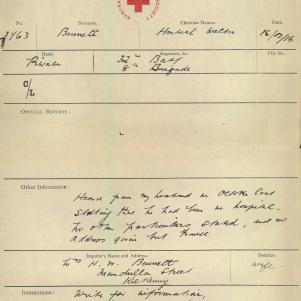 No. Surname. Christian Names. Date.
2463 Bennett Herbert Walter 16/12/16
Rank. Regiment, &c. File No.
Private 32nd Batt
8th Brigade
C/L
OFFICIAL REPORTS:
Other Information:
Heard from my husband in October last
stating that he had been in hospital
no other particulars stated, and no
address given but France.
Inquirer's Name and Address. Relation.
Mrs H. W. Bennett wife
Street
Kilkenny
Instructions: Write for information,